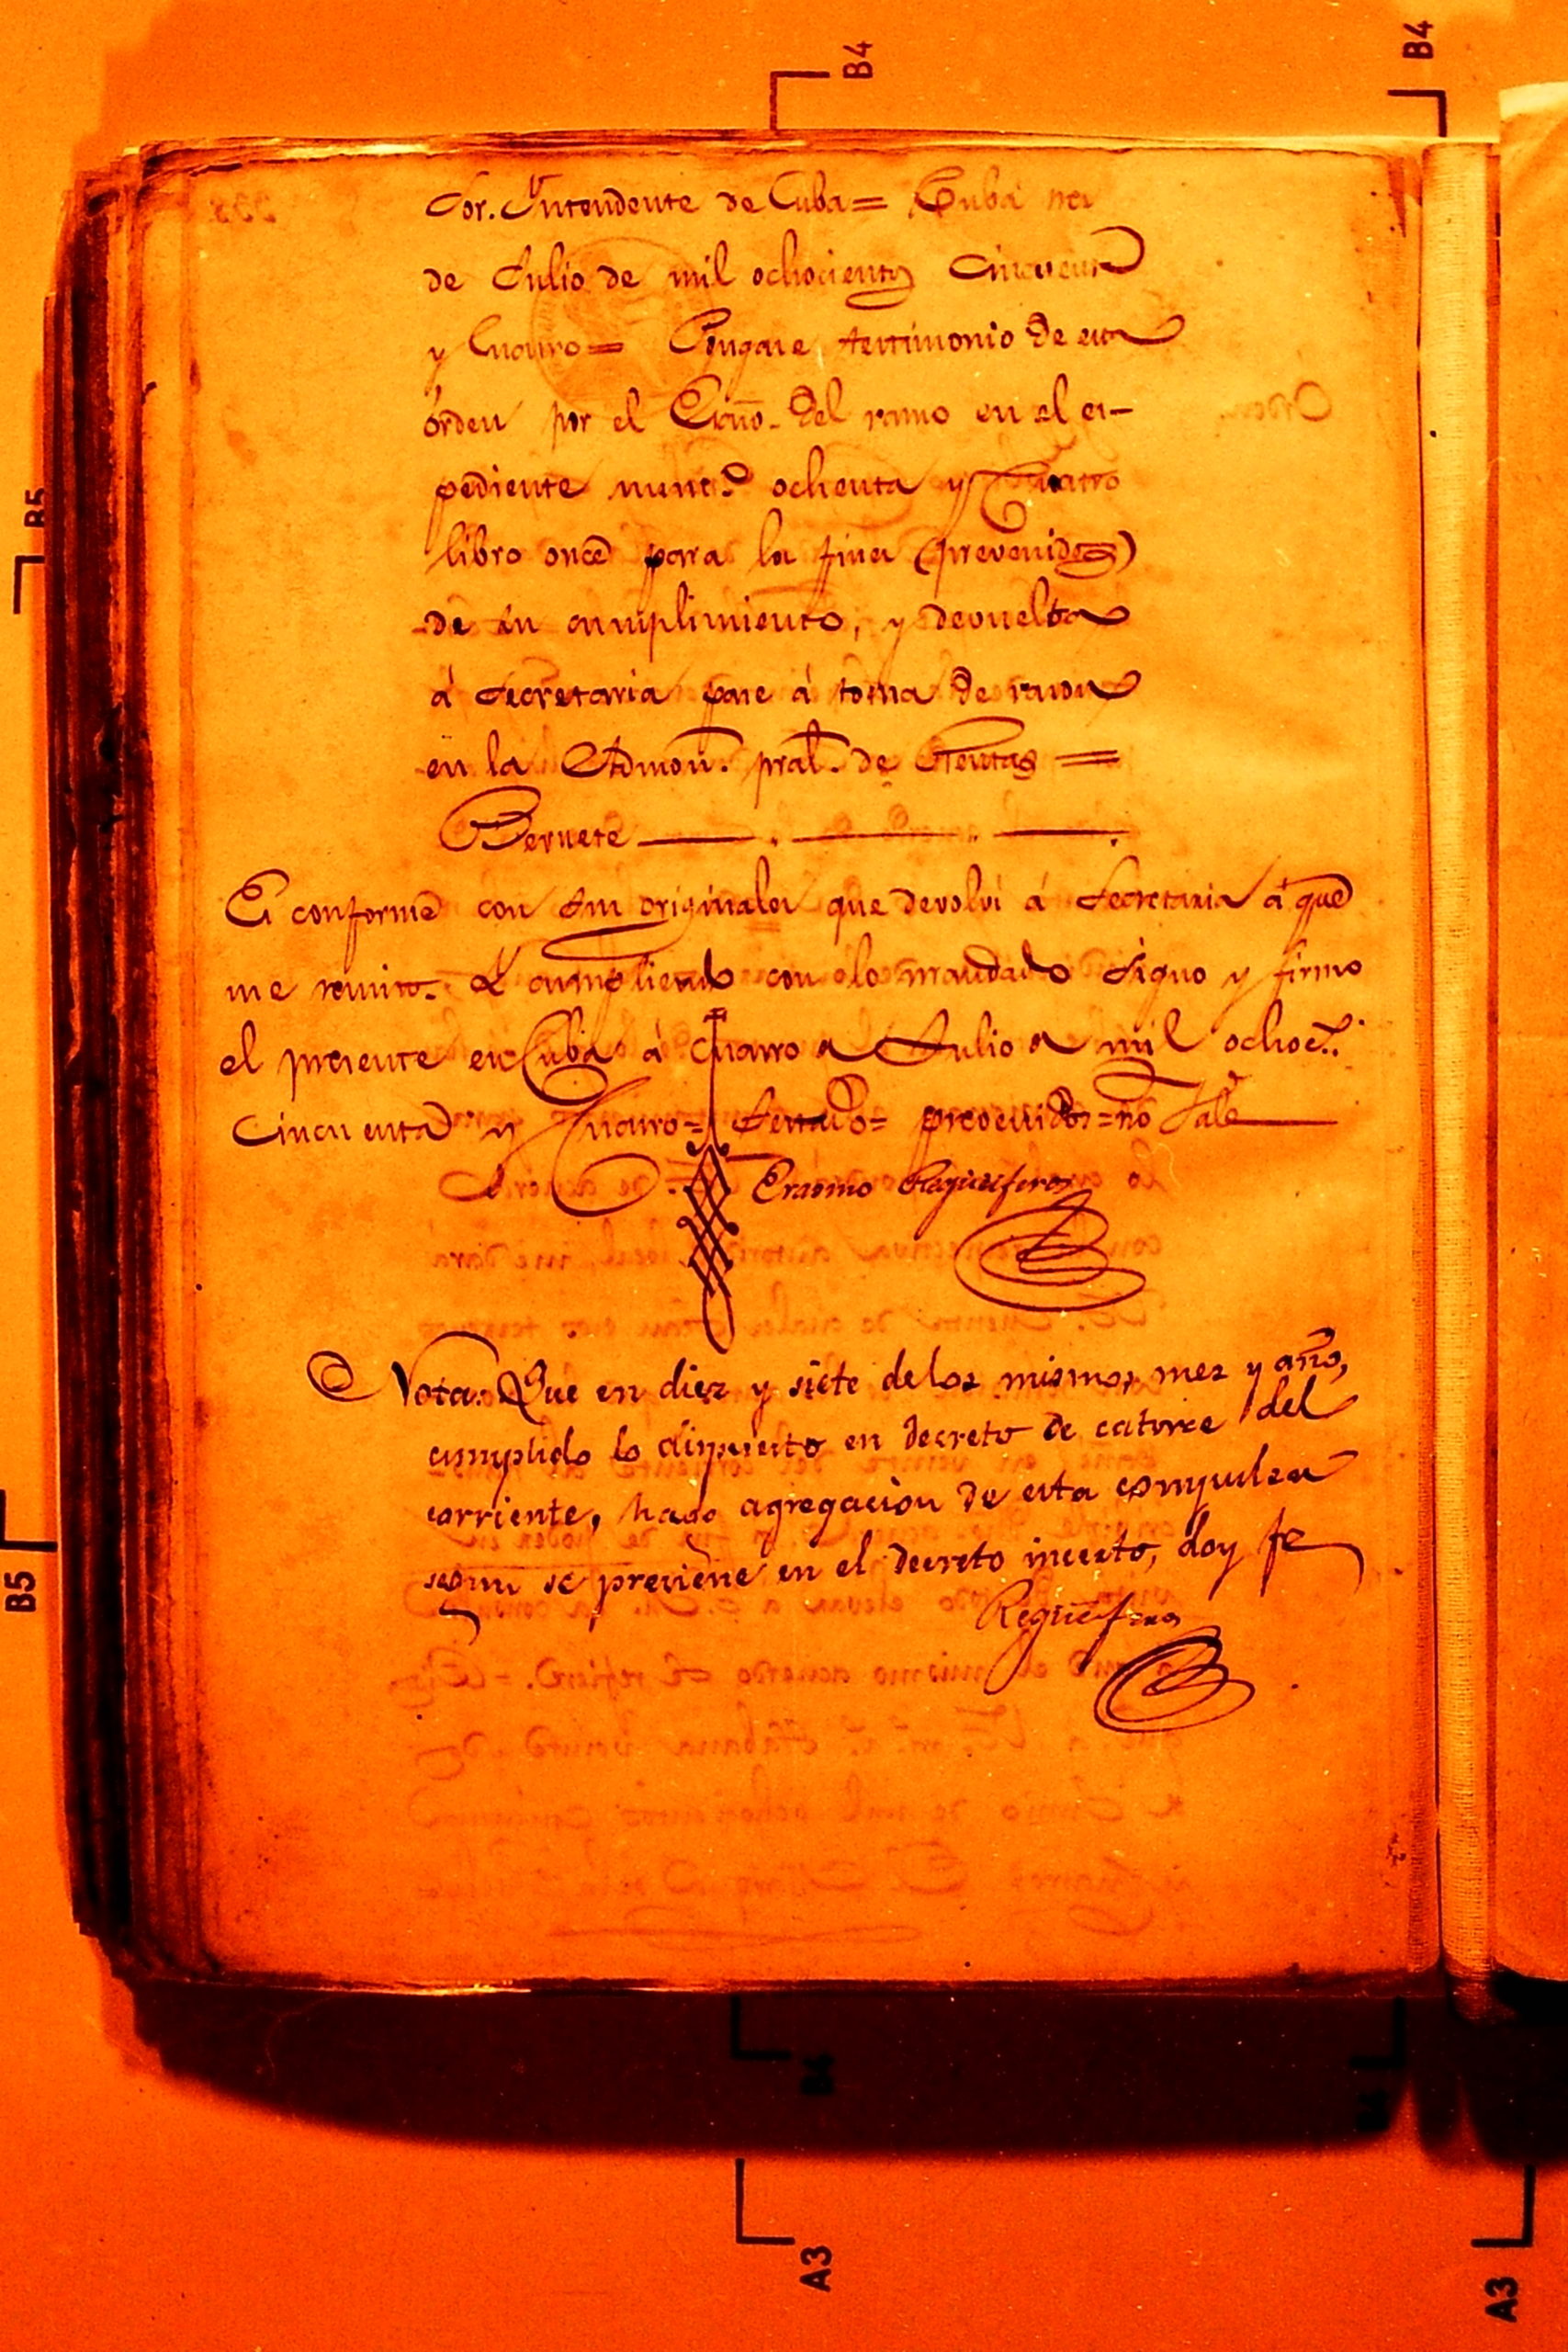 Sor. Yntendente de Cuba = Cuba tres
de Julio de mil ochocientos cincuenta
y Cuatro = Pongase testimonio de esta
órden por el Esño. del ramo en el es-
pediente numº ochenta y Cuatro
libro once para los fines (prevenidos)
de su cumplimiento, y devuelta
á Secretaria pase á toma de razon
en la Admon. pral. de Rentas =
Bernete
Es conforme con sus originales que devolví á Secretaria á que
me remito. Y cumpliendo con lo mandado signo y firmo
el presente en Cuba á cuatro de Julio de mil ochoc.s
cincuenta y Cuatro = Testado = prevenidos = no Vale
Erasmo Regueiferos
Nota: Que en diez y siete de los mismos mes y año,
cumplido lo dispuesto en decreto de catorce del
corriente, hago agregacion de esta compulsa
segun se previene en el decreto inserto, doy fe
Regueiferos
B4
B4
B5
B5
B4
B4
A3
A3